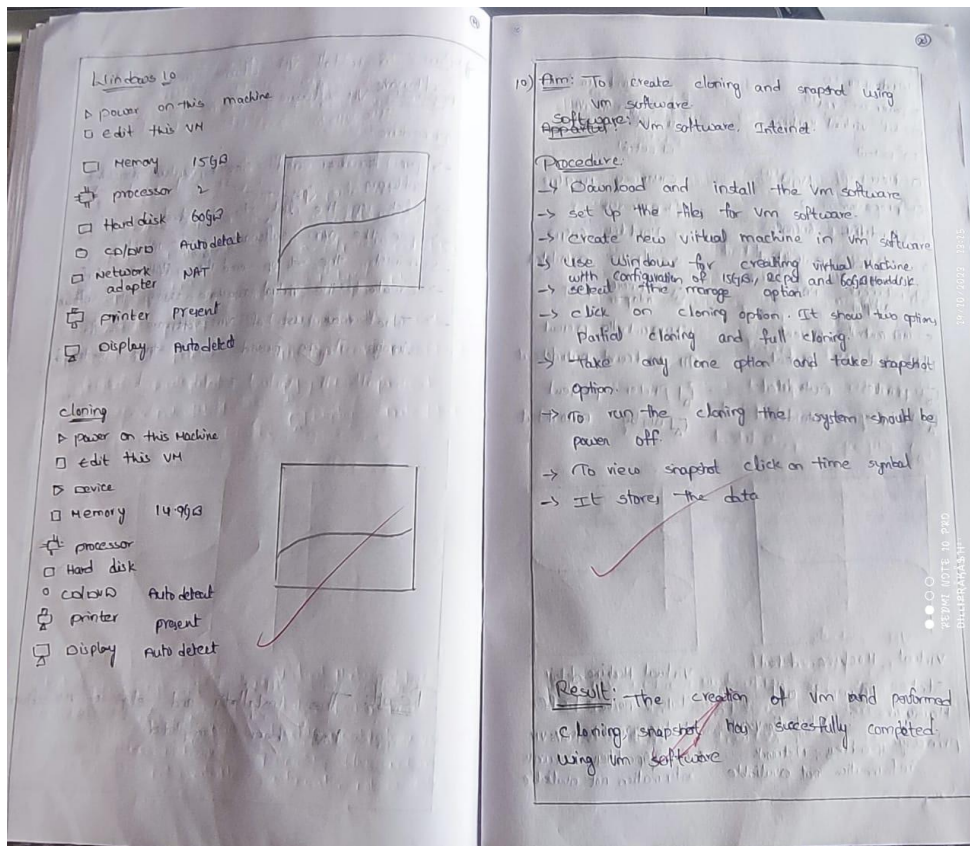 Windows 10
▷ power on this machine
□ edit this VM
□ Memory 15GB
processor 2
□ Hard disk 60GB
○ CD/DVD Auto detect
□ Network NAT
adapter
printer present
Display Auto detect
cloning
▷ power on this Machine
□ Edit this VM
▷ Device
□ Memory 14.9GB
processor
□ Hard disk
○ CD/DVD Auto detect
printer present
Display Auto detect
10) Aim: To create cloning and snapshot using
Vm software
Software:
Vm software, Internet.
Procedure:
→ Download and install the Vm software
→ set up the files for Vm software.
→ create new virtual machine in Vm software
→ use windows for creating virtual Machine
with configuration of 15GB, 2cpu and 60GB Harddisk.
→ select the manage option
→ click on cloning option. It show two option,
Partial cloning and full cloning.
→ Take any one option and take snapshot
option.
→ To run the cloning the system should be
power off.
→ To view snapshot click on time symbol
→ It stores the data
Result: The creation of Vm and performed
cloning, snapshot has succesfully competed
using Vm software
19/10/2023 19:26
REDMI NOTE 10 PRO
DILLIBRAKASH